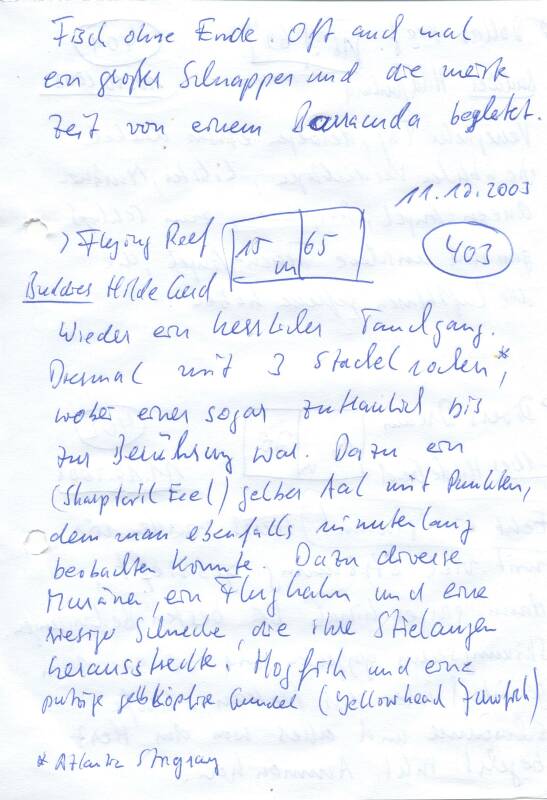 Fisch ohne Ende. Oft auch mal
ein großer Schnapper und die meiste
Zeit von einem Barracuda begleitet.
11.12.2003
> Flying Reef 15 m 65 403
Buddies Hilde Gerd
Wieder ein herrlicher Tauchgang.
Diesmal mit 3 Stachelrochen,*
wobei einer sogar zutraulich bis
zur Berührung war. Dazu ein
(Sharptail Eeel) gelber Aal mit Punkten,
dem man ebenfalls minutenlang
beobachten konnte. Dazu diverse
Muränen, ein Flughahn und eine
riesige Schnecke, die ihre Stielaugen
herausstreckte. Hogfish und eine
putzige gelbköpfige Grundel (yellowhead Jawfish)
* Atlantic Stingray